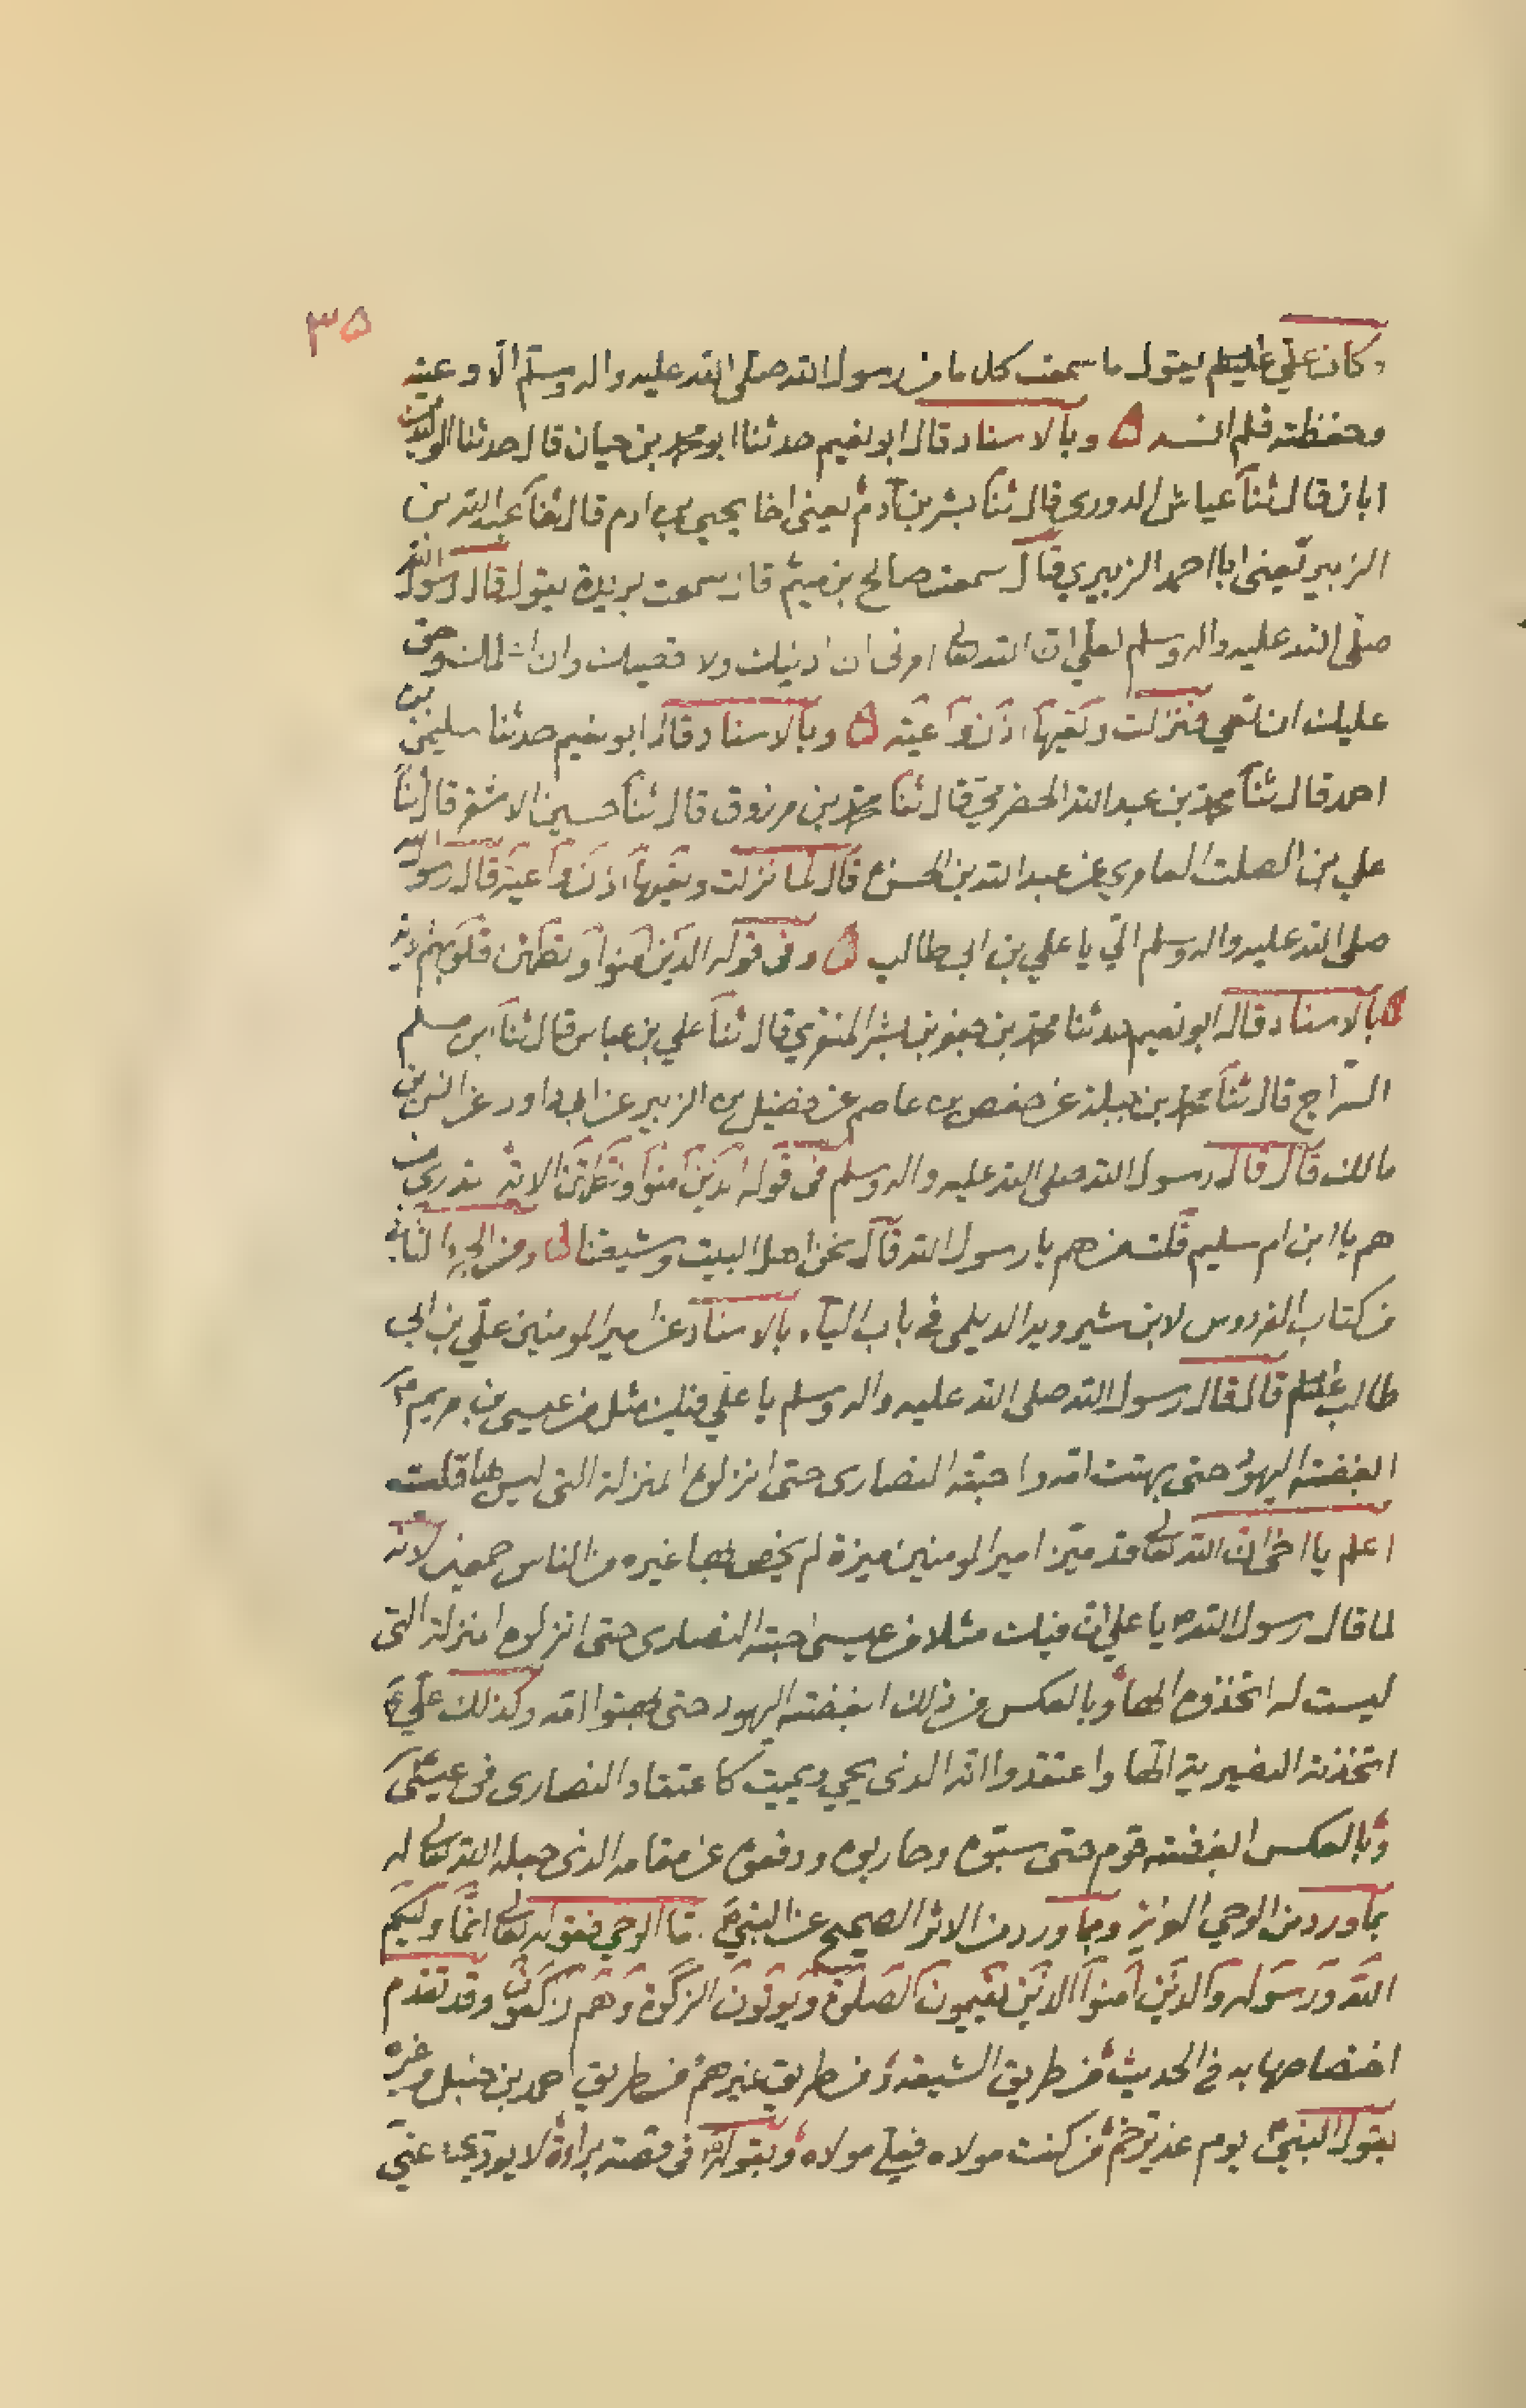 ٣٥
وكان علي عليه السلم يقول ما سمعت كلاما من رسول الله صلى الله عليه واله وسلم الا وعيته
وحفظته فلم انسه وبالاسناد قال ابو نعيم حدثنا ابو محمد بن حيان قال حدثنا الوليد بن
ابان قال ثنا عباس الدوري قال ثنا بشر بن آدم يعني اخا يحيى بن ادم قال ثنا عبد الله بن
الزبير يعني ابا احمد الزبيري قال سمعت صالح بن ميثم قال سمعت بريدة يقول قال رسول الله
صلى الله عليه واله وسلم لعلي ان الله تعالى امرني ان ادنيك ولا اقصيك وان اعلمك وحق
عليك ان تعي فنزلت وتعيها اذن واعية وبالاسناد قال ابو نعيم حدثنا سليمن بن
احمد قال ثنا محمد بن عبد الله الحضرمي قال ثنا محمد بن مرزوق قال ثنا حسين الاشقر قال ثنا
علي بن الصلت العامري عن عبد الله بن الحسن قال لما نزلت وتعيها اذن واعية قال رسول الله
صلى الله عليه واله وسلم اي يا علي بن ابي طالب وفي قوله الذين آمنوا وتطمئن قلوبهم الاية
بالاسناد قال ابو نعيم حدثنا محمد بن جعفر بن بشر المنقري قال ثنا علي بن عباس قال ثنا ابن مسلم
السراج قال ثنا محمد بن جبلة عن حفص بن عاصم عن فضيل بن الزبير عن ابي داود عن انس بن
مالك قال قال رسول الله صلى الله عليه واله وسلم في قوله الذين آمنوا وتطمئن الاية تدري من
هم يا ابن ام سليم قلت من هم يا رسول الله قال نحن اهل البيت وشيعتنا ومن الجزء الثاني
من كتاب الفردوس لابن شيرويه الديلمي في باب الياء بالاسناد عن امير المومنين علي بن ابي
طالب عليه السلم قال قال رسول الله صلى الله عليه واله وسلم يا علي فيك مثل من عيسى بن مريم
ابغضته اليهود حتى بهتت امه واحبته النصارى حتى انزلوه المنزلة التي ليس لها قلت
اعلم يا اخي ان الله تعالى قد ميز امير المومنين ميزة لم يخص بها غيره من الناس جميعا لانه
لما قال رسول الله ص يا علي ان فيك مثلا من عيسى احبته النصارى حتى انزلوه المنزلة التي
ليست له اتخذوه الها وبالعكس من ذلك ابغضته اليهود حتى بهتوا امه وكذلك علي ع
اتخذته النصيرية الها واعتقدوا انه الذي يحيي ويميت كاعتقاد النصارى في عيسى
وبالعكس ابغضته قوم حتى سبوه وحاربوه ودفعوه عن مقامه الذي جعله الله تعالى له
بما ورد من الوحي العزيز وبما ورد من الاثر الصحيح عن النبي ص اما الوحي فقوله تعالى انما وليكم
الله ورسوله والذين آمنوا الذين يقيمون الصلوة ويوتون الزكوة وهم راكعون وقد تقدم
اختصاصها به في الحديث من طريق الشيعة ومن طريق غيرهم من طريق احمد بن حنبل وغيره
بقول النبي يوم غدير خم من كنت مولاه فعلي مولاه وبقوله في قصة براءة لا يودي عني